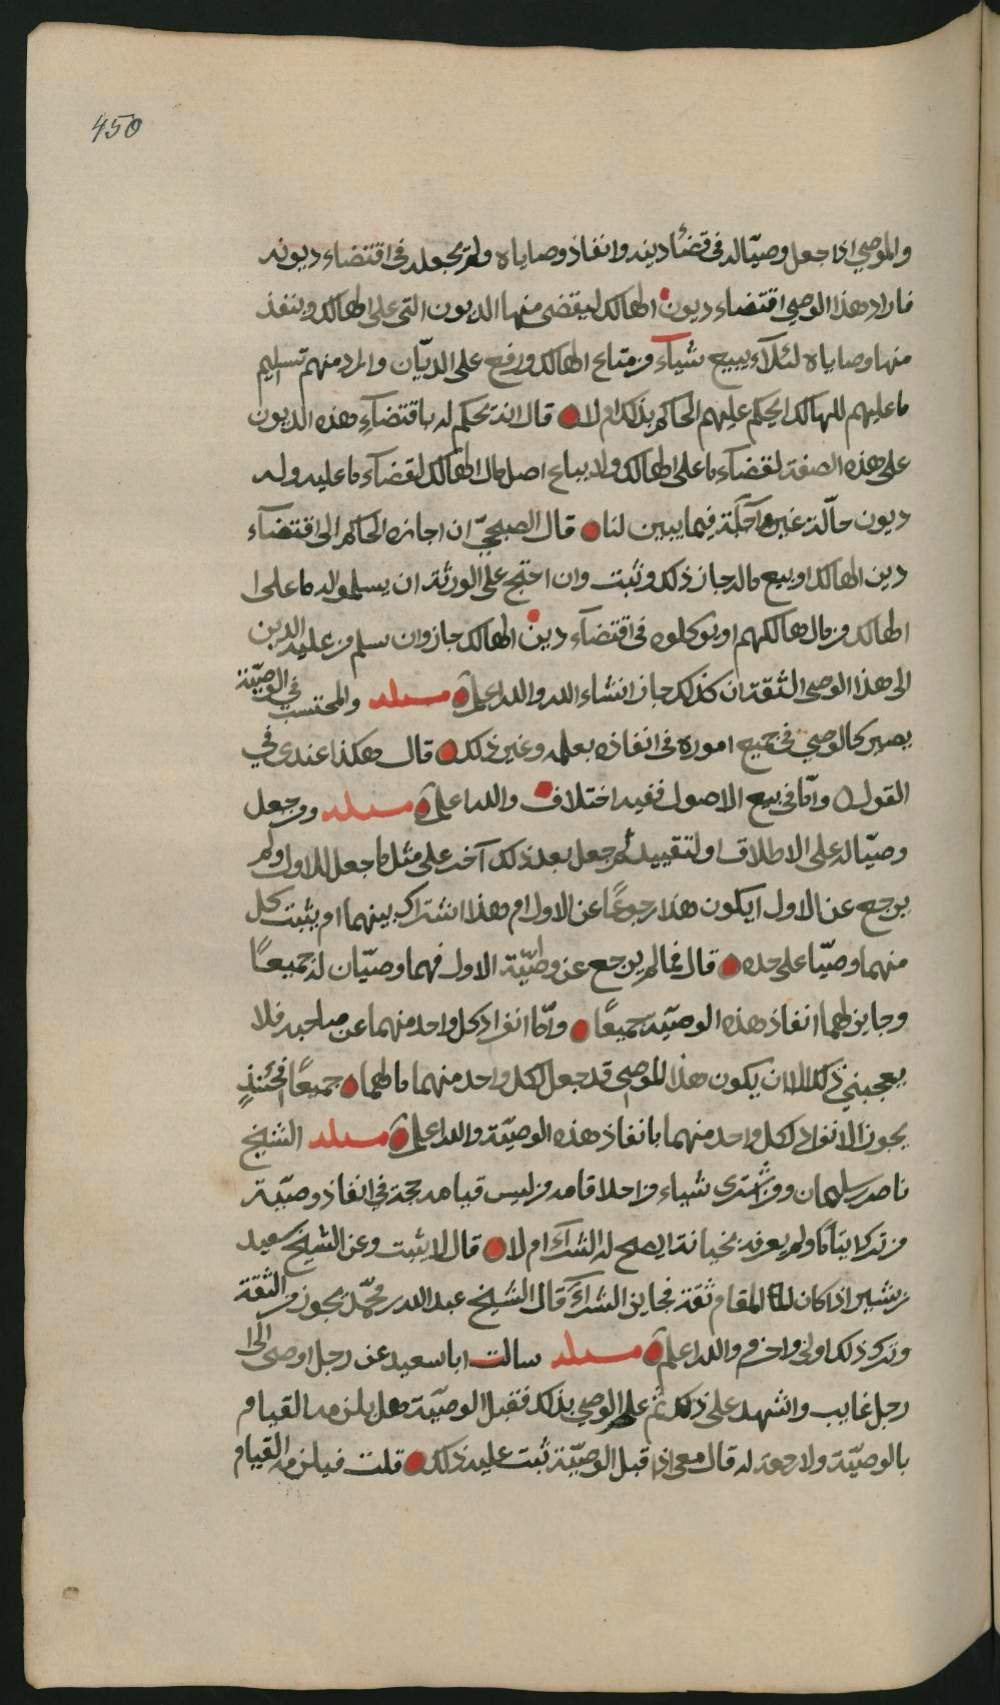 450
والموصي اذا جعل وصيّا له في قضاء دينه وانفاذ وصاياه ولم يجعله في اقتضاء ديونه
فاراد هذا الوصي اقتضاء ديون الهالك ليقضي منها الديون التي على الهالك وينفذ
منها وصاياه لئلا يبيع شياء من متاع الهالك ورفع على الديّان واراد منهم تسليم
ما عليهم للهالك ايحكم عليهم الحاكم بذلك ام لا قال انه يحكم له باقتضاء هذه الديون
على هذه الصفة لقضاء ما على الهالك ولا يباع اصل مال الهالك لقضاء ما عليه وله
ديون حالّة غير آجلة فيما يبين لنا قال الصبحيّ ان اجازه الحاكم الى اقتضاء
دين الهالك او بيع ماله جاز ذلك وثبت وان احتج على الورثة ان يسلموا له ما على
الهالك من مال هالكهم او يوكلوه في اقتضاء دين الهالك جاز وان سلم من عليه الدين
الى هذا الوصي الثقة ان كذلك جاز انشاء الله والله اعلم مسئلة والمحتسب في الوصيّة
يصير كالوصي في جميع اموره في انفاذه بعلمه وغير ذلك قال هكذا عندي في
القول وامّا في بيع الاصول ففيه اختلاف والله اعلم مسئلة ومن جعل
وصيّا له على الاطلاق او لتقييد ثم جعل بعد ذلك آخر على مثل ما جعل للاول ولم
يرجع عن الاول ايكون هذا رجوعًا عن الاول ام هذا اشتراك بينهما ام يثبت كل
منهما وصيّا على حده قال فما لم يرجع عن وصيّة الاول فهما وصيّان له جميعًا
وجايز لهما انفاذ هذه الوصيّة جميعًا وامّا انفراد كل واحد منهما عن صاحبه فلا
يعجبني ذلك الا ان يكون هذا الموصي قد جعل لكل واحد منهما ما لهما جميعًا فحئنذٍ
يجوز الانفراد لكل واحد منهما بانفاذ هذه الوصيّة والله اعلم مسئلة الشيخ
ناصر بن سليمان ومن اشترى شياء من احد اقامه من ليس قيامه حجة في انفاذ وصيّة
من ترك ايتامًا ولم يعرفه بخيانة ايصح له الشراء ام لا قال لا يثبت وعن الشيخ سعيد
بن بشير اذا كان المقام ثقة فجايز الشراء قال الشيخ عبدالله بن محمّد يجوز من الثقة
وترك ذلك اولى واحزم والله اعلم مسئلة سالت ابا سعيد عن رجل اوصى الى
رجل غايب واشهد على ذلك ثم علم الوصي بذلك فقبل الوصيّة هل يلزمه القيام
بالوصيّة ولا رجعة له قال معي اذا قبل الوصيّة ثبت عليه ذلك قلت فيلزمه القيام